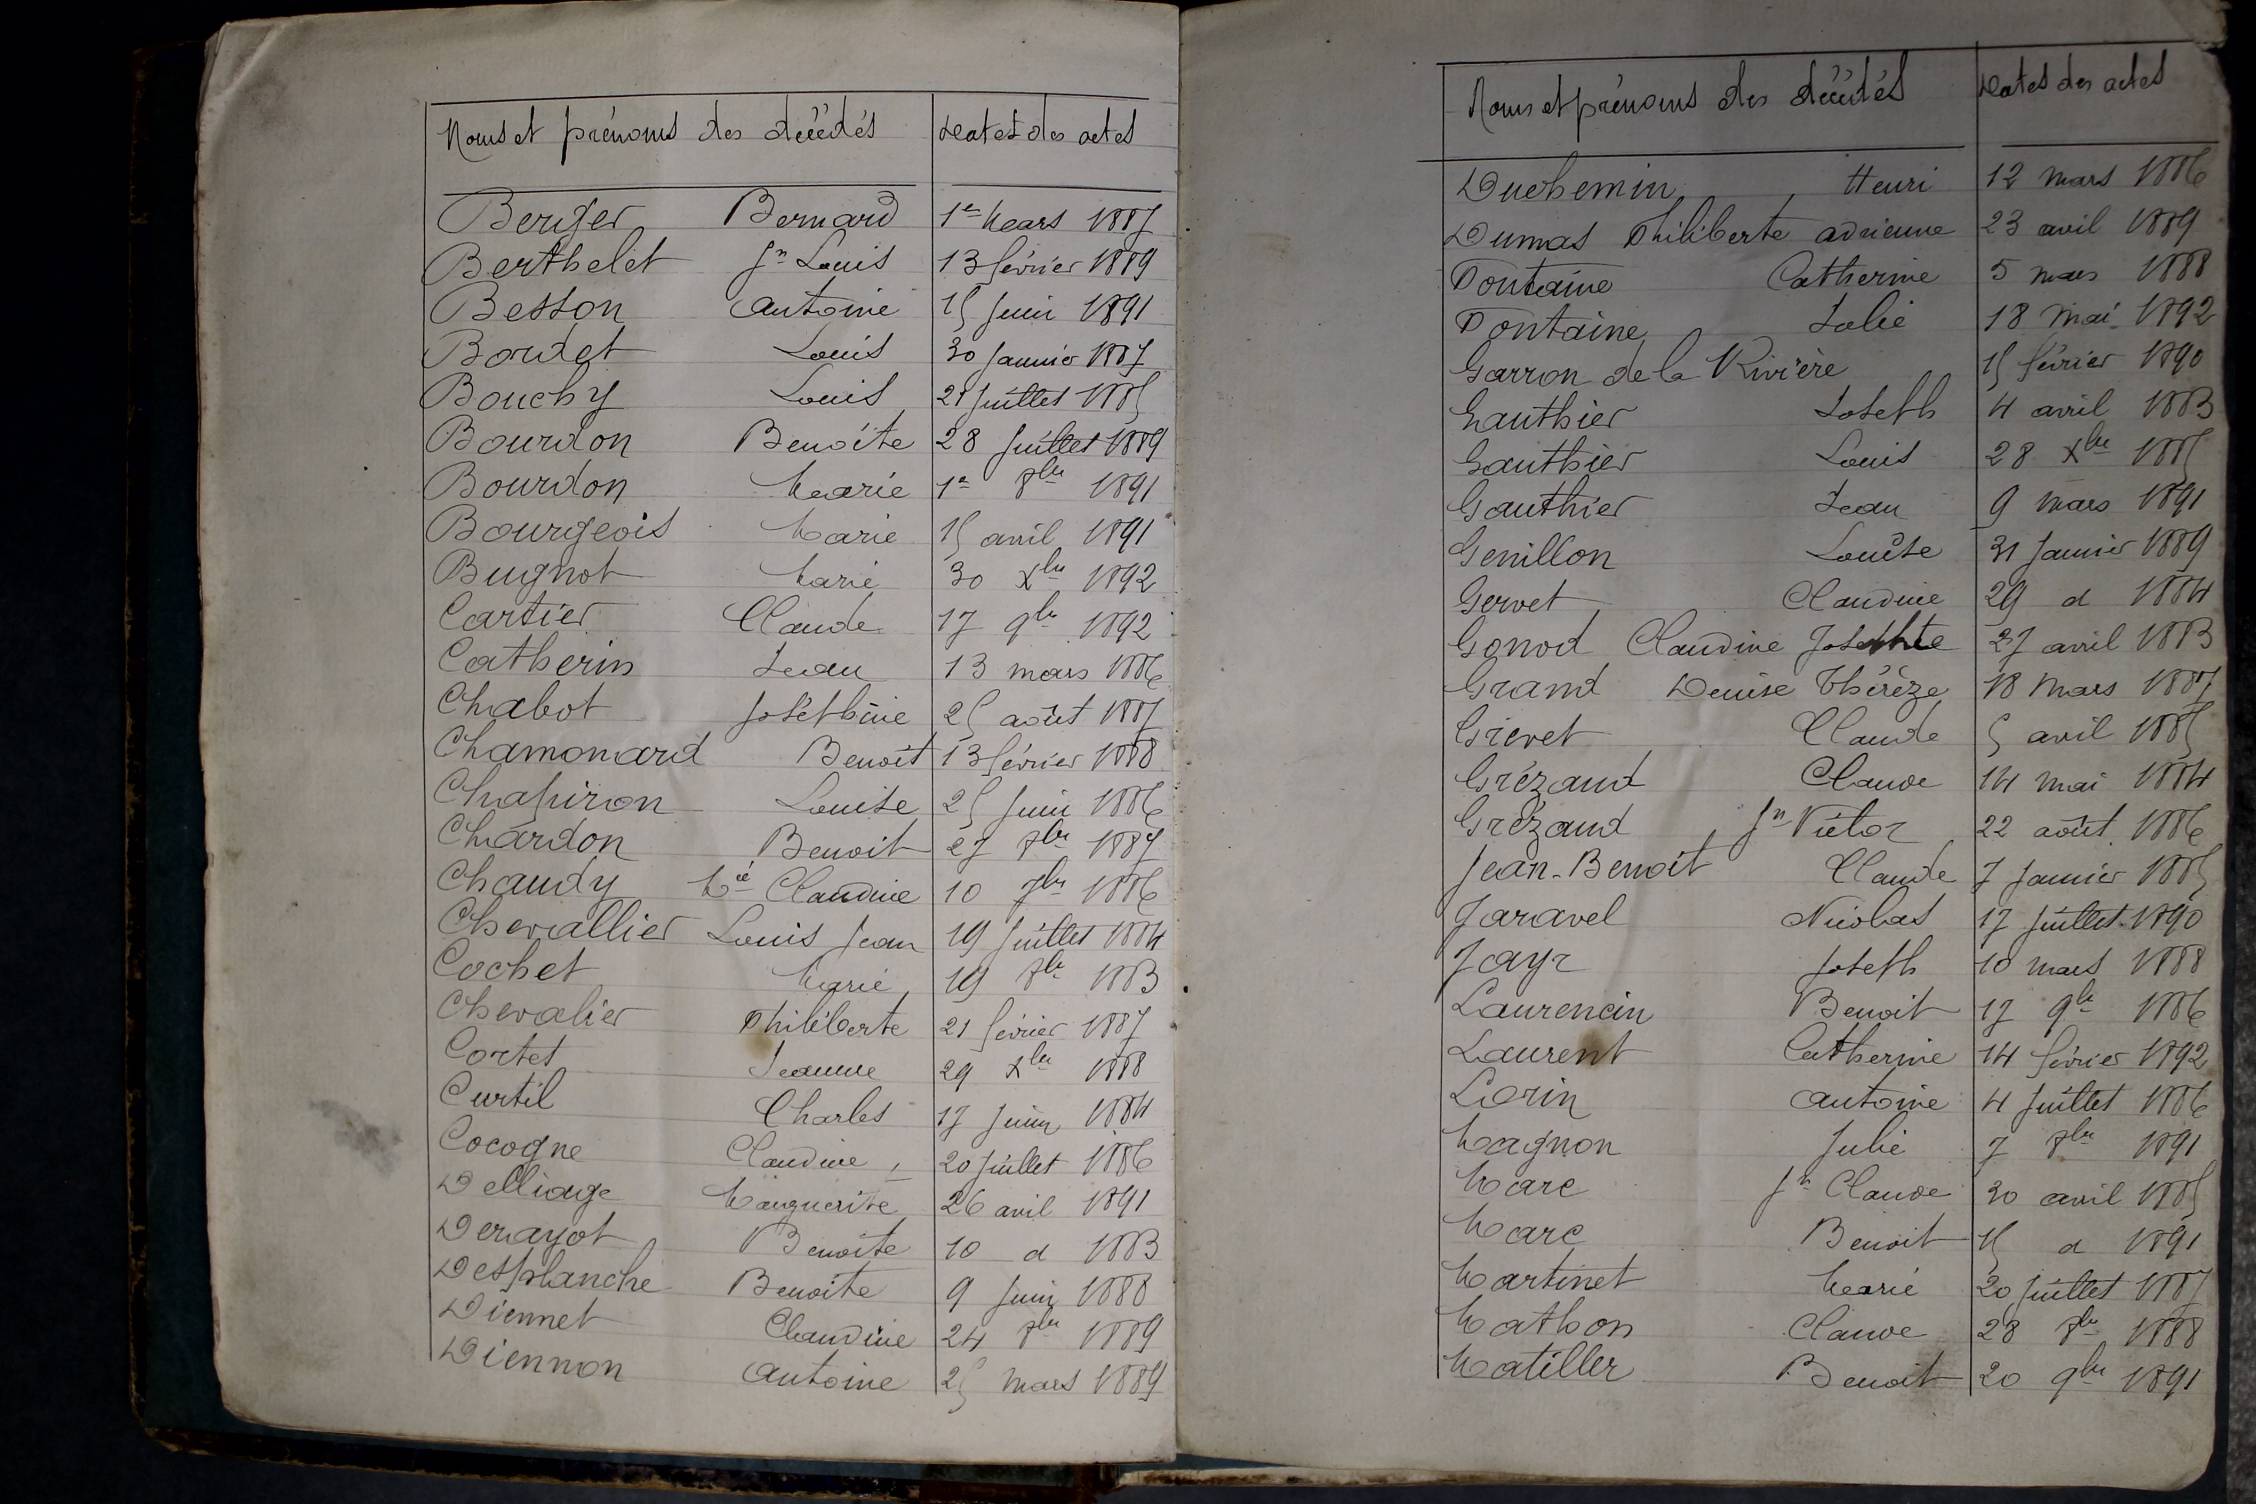 Noms et prénoms des décédés Dates des actes
Berger Bernard 1er Mars 1887
Berthelet Jn Louis 13 février 1889
Besson Antoine 15 Juin 1891
Bordet Louis 30 Janvier 1887
Bouchy Louis 21 Juillet 1885
Bourdon Benoîte 28 Juillet 1889
Bourdon Marie 1er 8bre 1891
Bourgeois Marie 15 avril 1891
Bugnot Marie 30 Xbre 1892
Cartier Claude 17 9bre 1892
Catherin Jean 13 mars 1886
Chabot Joséphine 25 août 1887
Chamonard Benoit 13 février 1888
Chapiron Louise 25 Juin 1886
Chardon Benoit 27 8bre 1887
Chaudy Mie Claudine 10 7bre 1886
Chevallier Louis Jean 19 Juillet 1884
Cochet Marie 19 8bre 1883
Chevalier Philiberte 21 février 1887
Cortet Jeanne 29 Xbre 1888
Curtil Charles 17 Juin 1884
Cocogne Claudine 20 Juillet 1886
Delliage Marguerite 26 avril 1891
Derayot Benoîte 10 d 1883
Desplanche Benoîte 9 Juin 1888
Diennet Claudine 24 8bre 1889
Diennon Antoine 25 Mars 1889
Noms et prénoms des décédés Dates des actes
Duchemin Henri 12 Mars 1886
Dumas Philiberte Adrienne 23 avril 1889
Fontaine Catherine 5 mars 1888
Fontaine Julie 18 Mai 1892
Garron de la Rivière 15 février 1890
Gauthier Joseph 4 avril 1883
Gauthier Louis 28 Xbre 1885
Gauthier Jean 9 Mars 1891
Genillon Louise 31 Janvier 1889
Gervet Claudine 29 d 1884
Gonod Claudine Josephte 27 avril 1883
Grand Denise Thérèze 18 Mars 1887
Grivet Claude 5 avril 1885
Grézaud Claude 14 Mai 1884
Grézaud Jn Victor 22 août 1886
Jean-Benoît Claude 7 Janvier 1885
Jaravel Nicolas 17 Juillet 1890
Jayr Joseph 10 Mars 1888
Laurencin Benoit 17 9bre 1886
Laurent Catherine 14 février 1892
Lorin Antoine 4 Juillet 1886
Magnon Julie 7 8bre 1891
Marc Jn Claude 30 avril 1885
Marc Benoit 15 d 1891
Martinet Marie 20 Juillet 1887
Mathon Claude 28 8bre 1888
Matiller Benoit 20 9bre 1891